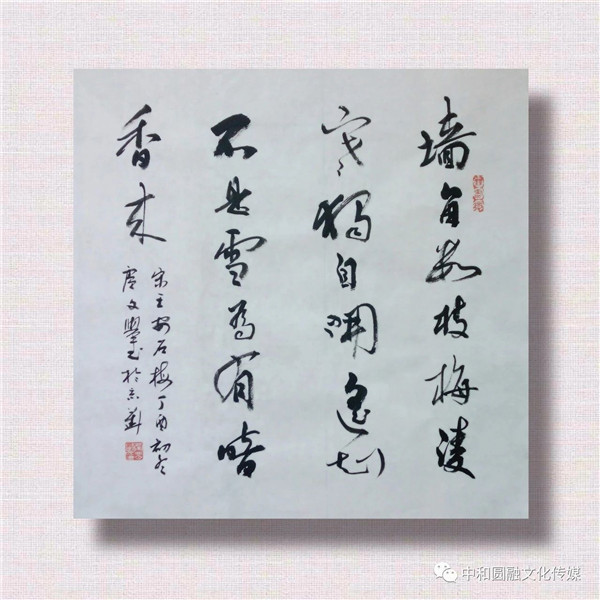 墙角数枝梅凌
寒独自開遥知
不是雪為有暗
香来
宋王安石梅丁酉初冬
唐文學书於京華
中和圆融文化传媒